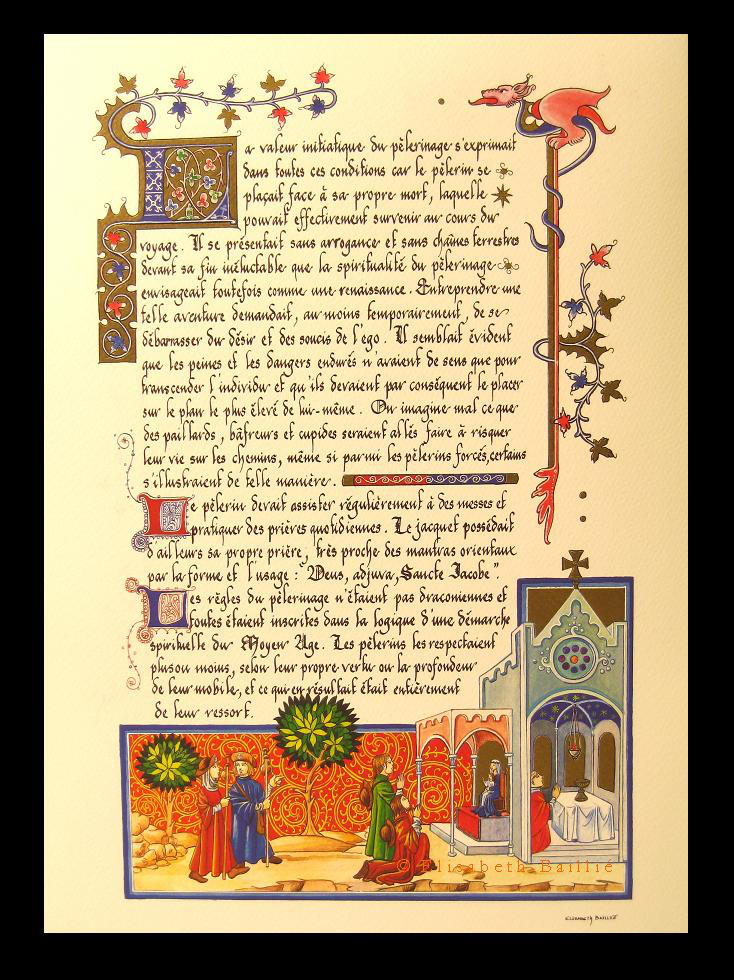 La valeur initiatique du pèlerinage s'exprimait
dans toutes ces conditions car le pèlerin se
plaçait face à sa propre mort, laquelle
pouvait effectivement survenir au cours du
voyage. Il se présentait sans arrogance et sans chaînes terrestres
devant sa fin inéluctable que la spiritualité du pèlerinage
envisageait toutefois comme une renaissance. Entreprendre une
telle aventure demandait, au moins temporairement, de se
débarrasser du désir et des soucis de l'ego. Il semblait évident
que les peines et les dangers endurés n'avaient de sens que pour
transcender l'individu et qu'ils devaient par conséquent le placer
sur le plan le plus élevé de lui-même. On imagine mal ce que
des paillards, bâfreurs et cupides seraient allés faire à risquer
leur vie sur les chemins, même si parmi les pèlerins forcés, certains
s'illustraient de telle manière.
Le pèlerin devait assister régulièrement à des messes et
pratiquer des prières quotidiennes. Le jacquet possédait
d'ailleurs sa propre prière, très proche des mantras orientaux
par la forme et l'usage : "Deus, adjuva, Sancte Jacobe".
Les règles du pèlerinage n'étaient pas draconiennes et
toutes étaient inscrites dans la logique d'une démarche
spirituelle du Moyen Age. Les pèlerins les respectaient
plus ou moins, selon leur propre vertu ou la profondeur
de leur mobile, et ce qui en résultait était entièrement
de leur ressort.
© Elisabeth Baillié
ELISABETH BAILLIÉ